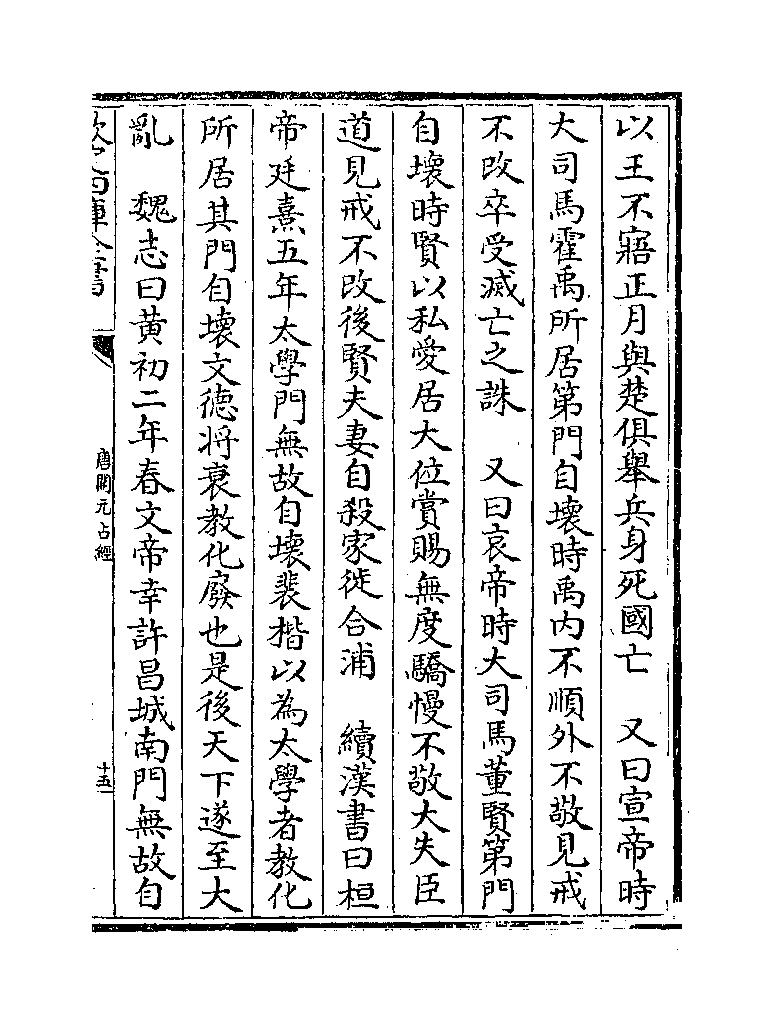 以王不寤正月與楚俱舉兵身死國亡　又曰宣帝時
大司馬霍禹所居第門自壞時禹内不順外不敬見戒
不改卒受滅亡之誅　又曰哀帝時大司馬董賢第門
自壞時賢以私愛居大位賞賜無度驕慢不敬大失臣
道見戒不改後賢夫妻自殺家徙合浦　續漢書曰桓
帝延熹五年太學門無故自壞裴揩以為太學者教化
所居其門自壞文德将衰教化廢也是後天下遂至大
亂　魏志曰黄初二年春文帝幸許昌城南門無故自
欽定四庫全書
唐開元占經
十五